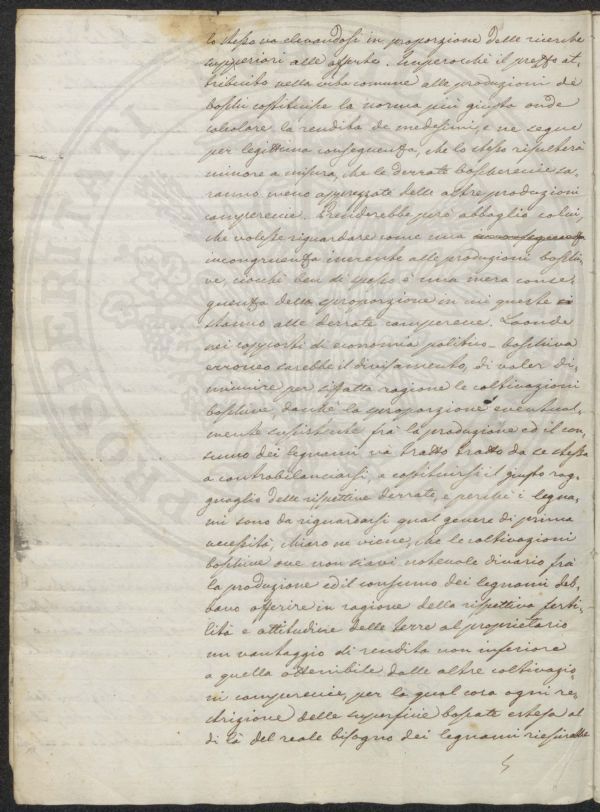 lo stesso va elevandosi in proporzione delle ricerche
supperiori alle offerte. Imperocchè il prezzo at-
tribuito nella vita comune alle produzioni dei
boschi costituisce la norma più giusta onde
calcolare la rendita de medesimi, e ne segue
per legittima conseguenza, che lo stesso risulterà
minore a misura, che le derrate boscherecie sa-
ranno meno apprezzate delle altre produzioni
camperecie. Prenderebbe però abbaglio colui,
che volesse riguardare come una
incongruenza inerente alle produzioni boschi-
ve, ciocchè ben di spesso è una mera conse-
guenza della sproporzione in cui queste
stanno alle derrate camperecie. Laonde
nei rapporti di economia politico-boschiva
erroneo sarebbe il divisamento, di voler di-
minuire per siffatta ragione le coltivazioni
boschive, daché la sproporzione eventual-
mente sussistente frà la produzione ed il con-
sumo dei legnami và tratto tratto da se stessa
a controbilanciarsi, a costituirsi il giusto rag-
guaglio delle rispettive derrate, e perché i legna-
mi sono da riguardarsi qual genere di prima
necessità, chiaro ne viene, che le coltivazioni
boschive ove non siavi notevole divario frà
la produzione ed il consumo dei legnami deb-
bano offerire in ragione della rispettiva ferti-
lità e attitudine delle terre al proprietario
un vantaggio di rendita non inferiore
a quella ottenibile dalle altre coltivazio-
ni camperecie, per la qual cosa ogni re-
strizione delle superficie boscate estesa al
di là del reale bisogno dei legnami
PROSPERITATI